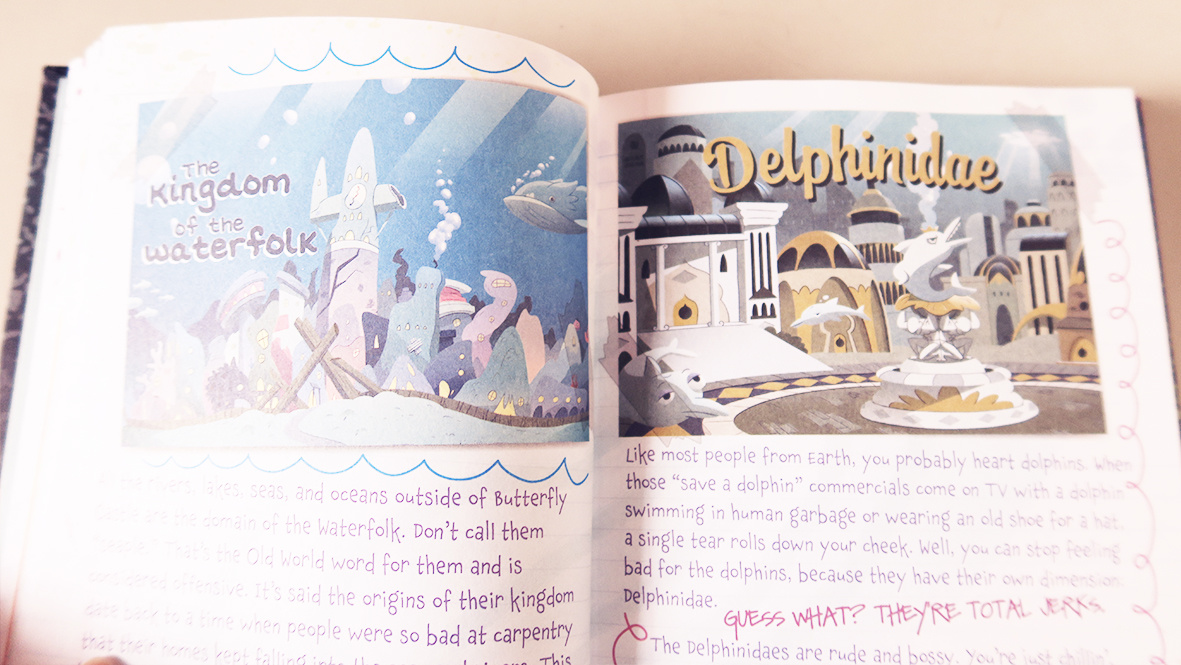 The
Kingdom
of the
Waterfolk
All the rivers, lakes, seas, and oceans outside of Butterfly
Castle are the domain of the Waterfolk. Don't call them
"seaple." That's the Old World word for them and is
considered offensive. It's said the origins of their kingdom
date back to a time when people were so bad at carpentry
that their homes kept falling into the This
Delphinidae
Like most people from Earth, you probably heart dolphins. When
those "save a dolphin" commercials come on TV with a dolphin
swimming in human garbage or wearing an old shoe for a hat,
a single tear rolls down your cheek. Well, you can stop feeling
bad for the dolphins, because they have their own dimension:
Delphinidae.
GUESS WHAT? THEY'RE TOTAL JERKS.
The Delphinidaes are rude and bossy. You're just chillin'